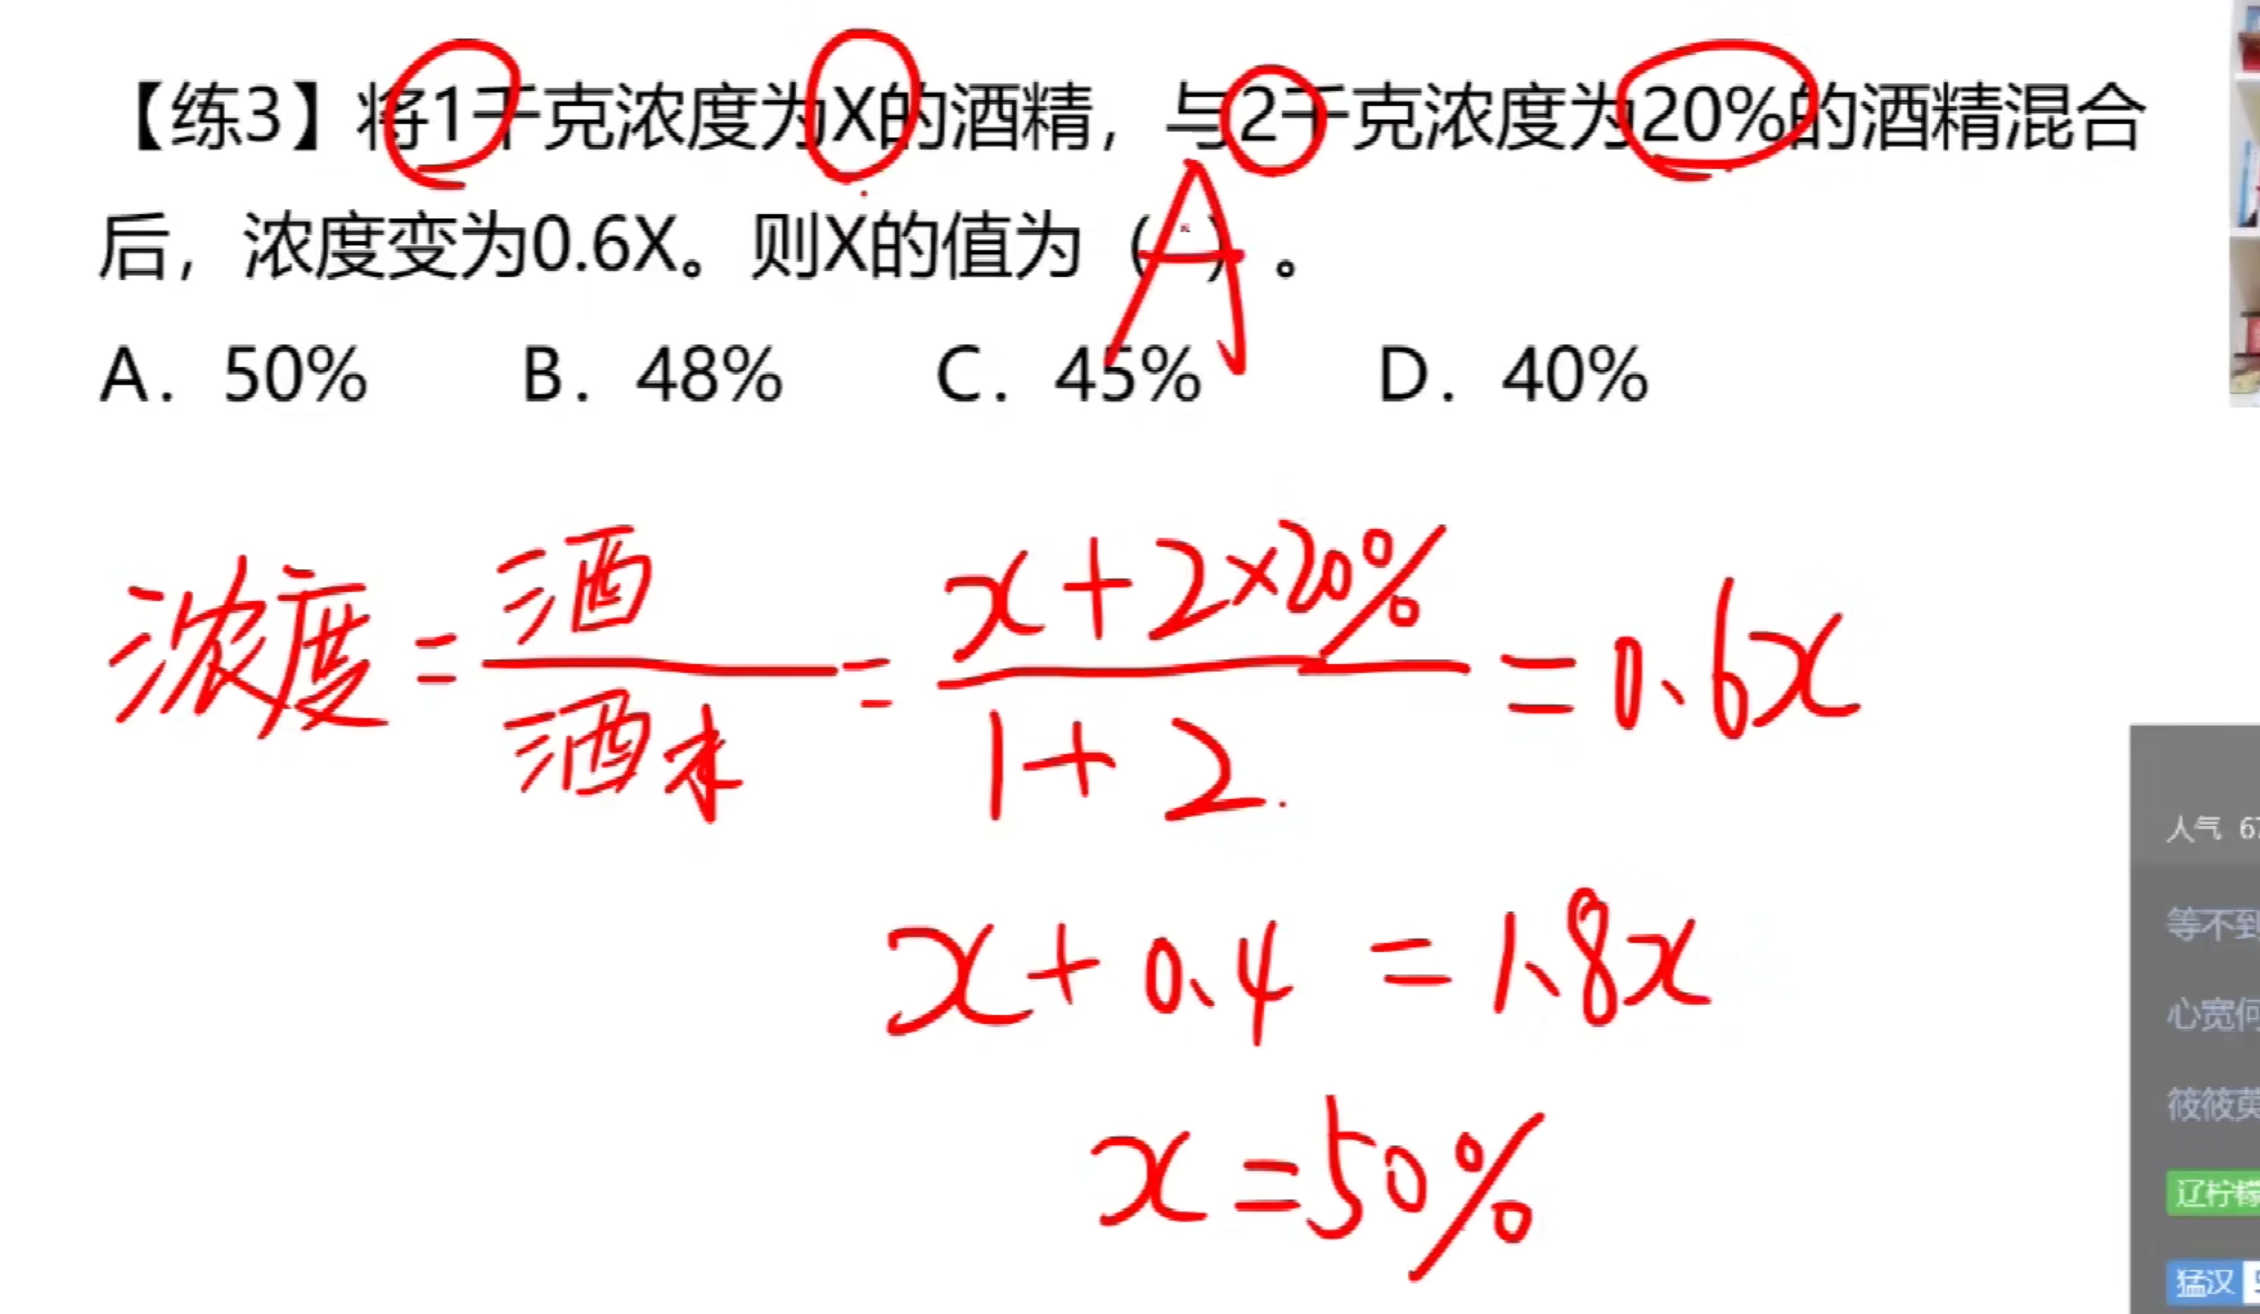 【练3】将1千克浓度为X的酒精，与2千克浓度为20%的酒精混合
后，浓度变为0.6X。则X的值为（A）。
A. 50% B. 48% C. 45% D. 40%
浓度=酒/酒水=x+2×20%/1+2=0.6x
x+0.4=1.8x
x=50%
人气
等不到
心宽何
筱筱
辽柠檬
猛汉